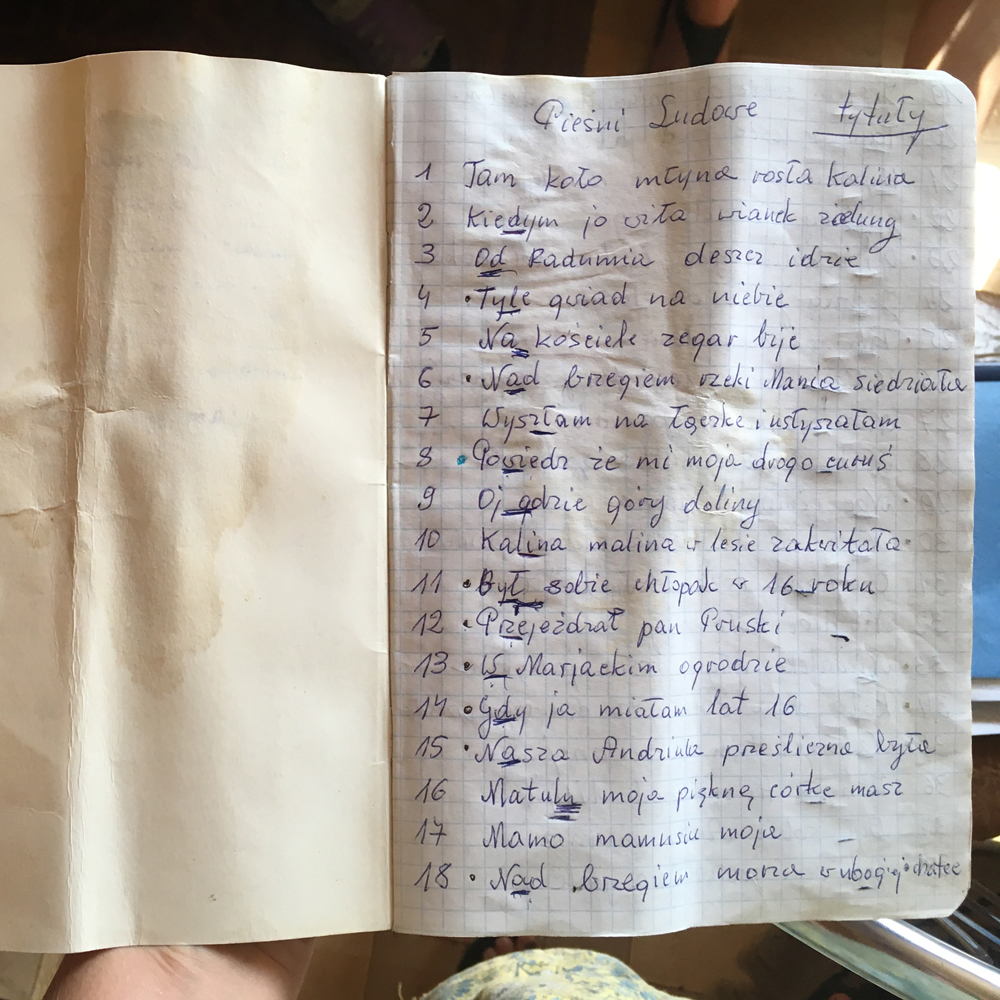 Pieśni Ludowe tytuły
1 Tam koło młyna rosła Kalina
2 Kiedym jo wiła wianek zielung
3 Od Radumia deszcz idzie
4 Tyle gwiad na niebie
5 Na kościele zegar bije
6 Nad brzegiem rzeki Mania siedziała
7 Wyszłam na łączke i usłyszałam
8 Powiedz że mi moja drogo curuś
9 Oj gdzie góry doliny
10 Kalina malina w lesie zakwitała
11 Był sobie chłopak w 16 roku
12 Przejeżdrał pan Pruski
13 W Marjackim ogrodzie
14 Gdy ja miałam lat 16
15 Nasza Andziula prześliczna była
16 Matulu moja piękną córkę masz
17 Mamo mamusiu moja
18 Nad brzegiem morza w ubogiej chatce